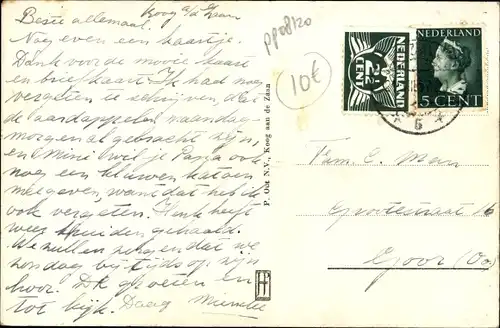 Beste allemaal. Koog a/d Zaan
Nog even een kaartje.
Dank voor de mooie kaart
en briefkaart. Ik had nog
vergeten te schrijven, dat
de aardappels maandag-
morgen al gebracht zijn,
en Mimi wil je Papa ook
nog een kluwen katoen
meegeven, want dat heb ik
ook vergeten. Henk heeft
weer kruiden gehaald.
We zullen zorgen dat we
zondag bijtijds op zijn
hoor. De groeten en
tot kijk. Daag
pp08120
10€
P. Out N.V., Koog aan de Zaan
NEDERLAND
2½
CENT
NEDERLAND
5 CENT
6
Fam. C.
Grotestraat 16
Goor (Ov.)